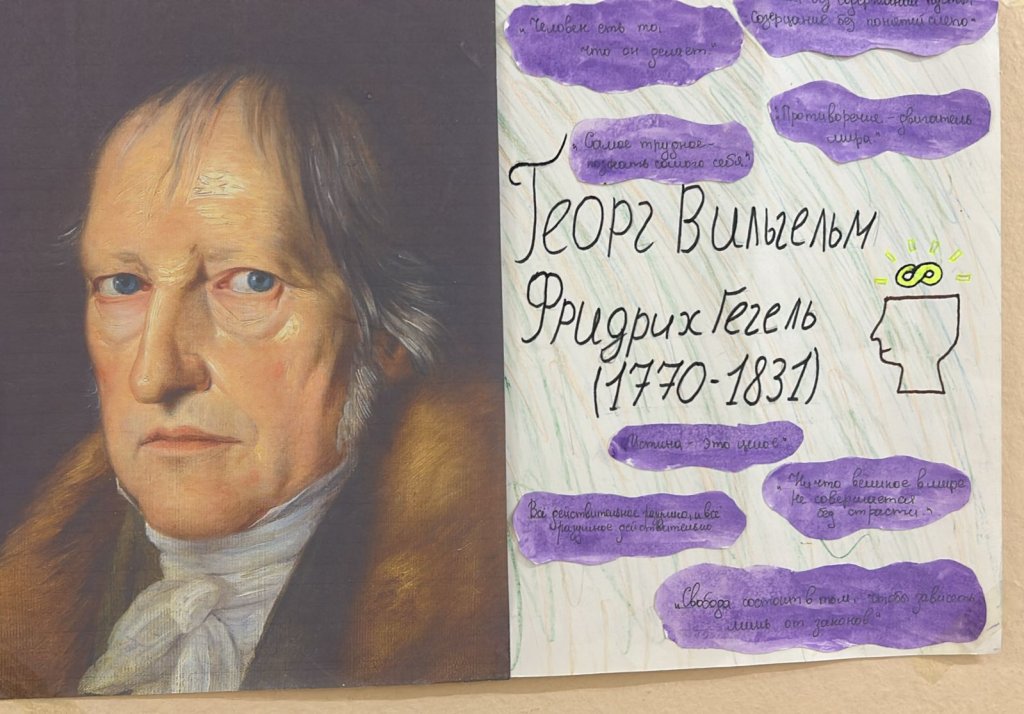 „Человек есть то,
что он делает."
без содержания пусты
Созерцание без понятий слепо"
„Противоречие - двигатель
мира"
„Самое трудное -
познать самого себя"
Георг Вильгельм
Фридрих Гегель
(1770-1831)
„Истина - это целое"
„Ничто великое в мире
не совершается
без страсти."
Всё действительное разумно, и всё
разумное действительно
„Свобода состоит в том, чтобы зависеть
лишь от законов"